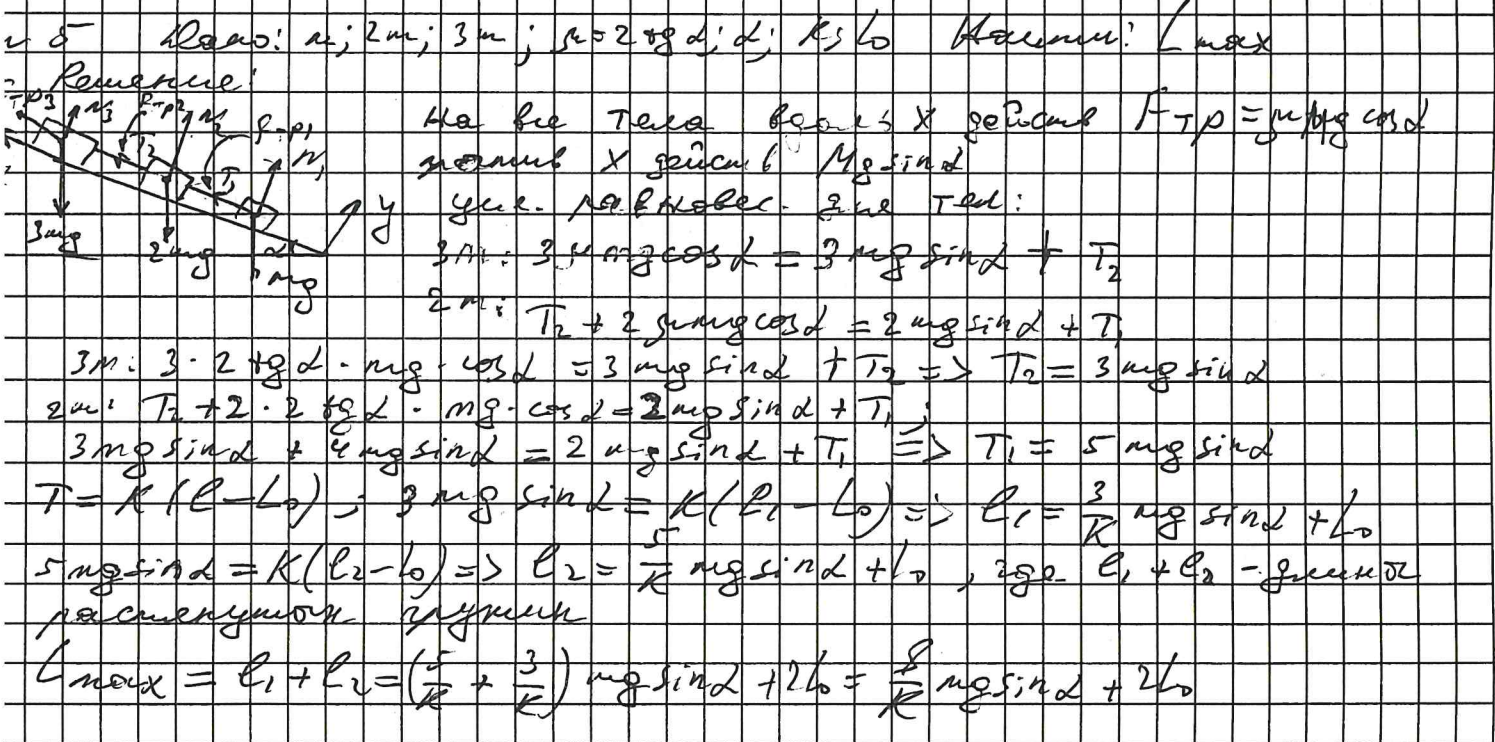 N 5 Дано: m; 2m; 3m; μ=2tgα; α; K; L₀ Найти: L max
Решение:
Fтр3 N₃ Fтр2 N₂ Fтр1 N₁
T₂ T₁
3mg 2mg mg α y
На все тела вдоль X действ Fтр = μMg cosα
против X действ Mg sinα
усл. равновес. для тел:
3m: 3μmg cosα = 3mg sinα + T₂
2m: T₂ + 2μmg cosα = 2mg sinα + T₁
3m: 3·2tgα·mg·cosα = 3mg sinα + T₂ => T₂ = 3mg sinα
2m: T₂ + 2·2tgα·mg·cosα = 2mg sinα + T₁;
3mg sinα + 4mg sinα = 2mg sinα + T₁ => T₁ = 5mg sinα
T = K(l-L₀); 3mg sinα = K(l₁-L₀) => l₁ = 3/K mg sinα + L₀
5mg sinα = K(l₂-L₀) => l₂ = 5/K mg sinα + L₀, где l₁ + l₂ - длина
растянутых пружин
Lmax = l₁ + l₂ = (5/K + 3/K) mg sinα + 2L₀ = 8/K mg sinα + 2L₀